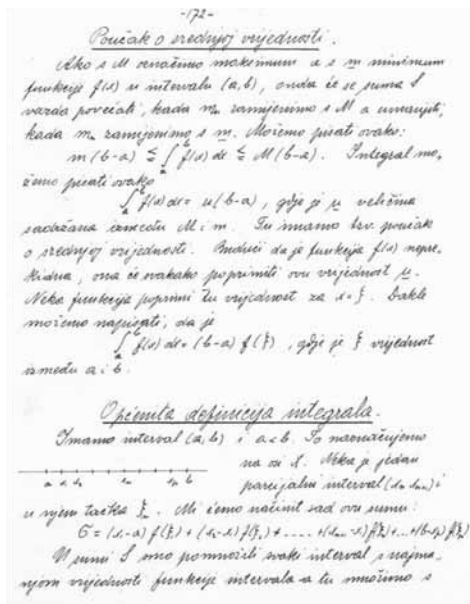 -172-
Poučak o srednjoj vrijednosti.
Ako s M označimo maksimum a s m minimum
funkcije f(x) u intervalu (a,b), onda će se suma S
vazda povećati, kada mₙ zamijenimo s M a umanjiti,
kada mₙ zamijenimo s m. Možemo pisati ovako:
m(b-a) ≤ ∫ₐᵇ f(x) dx ≤ M(b-a). Integral mo-
žemo pisati ovako
∫ₐᵇ f(x) dx = μ(b-a), gdje je μ veličina
sadržana između M i m. Tu imamo tzv. poučak
o srednjoj vrijednosti. Budući da je funkcija f(x) nepre-
kidna, ona će svakako poprimiti ovu vrijednost μ.
Neka funkcija poprimi tu vrijednost za x = ξ. Dakle
možemo napisati, da je
∫ₐᵇ f(x) dx = (b-a) f(ξ), gdje je ξ vrijednost
između a i b.
Općenita definicija integrala.
Imamo interval (a,b) i a<b. To naznačujemo
na osi X. Neka je jedan
parcijalni interval (xₙ xₙ₊₁) i
u njem tačka ξₙ. Mi ćemo načinit sad ovu sumu:
σ = (x₁-a) f(ξ) + (x₂-x₁) f(ξ₁) + ..... +
U sumi S smo pomnožili svaki interval s najma-
njom vrijednosti funkcije intervala a tu množimo s